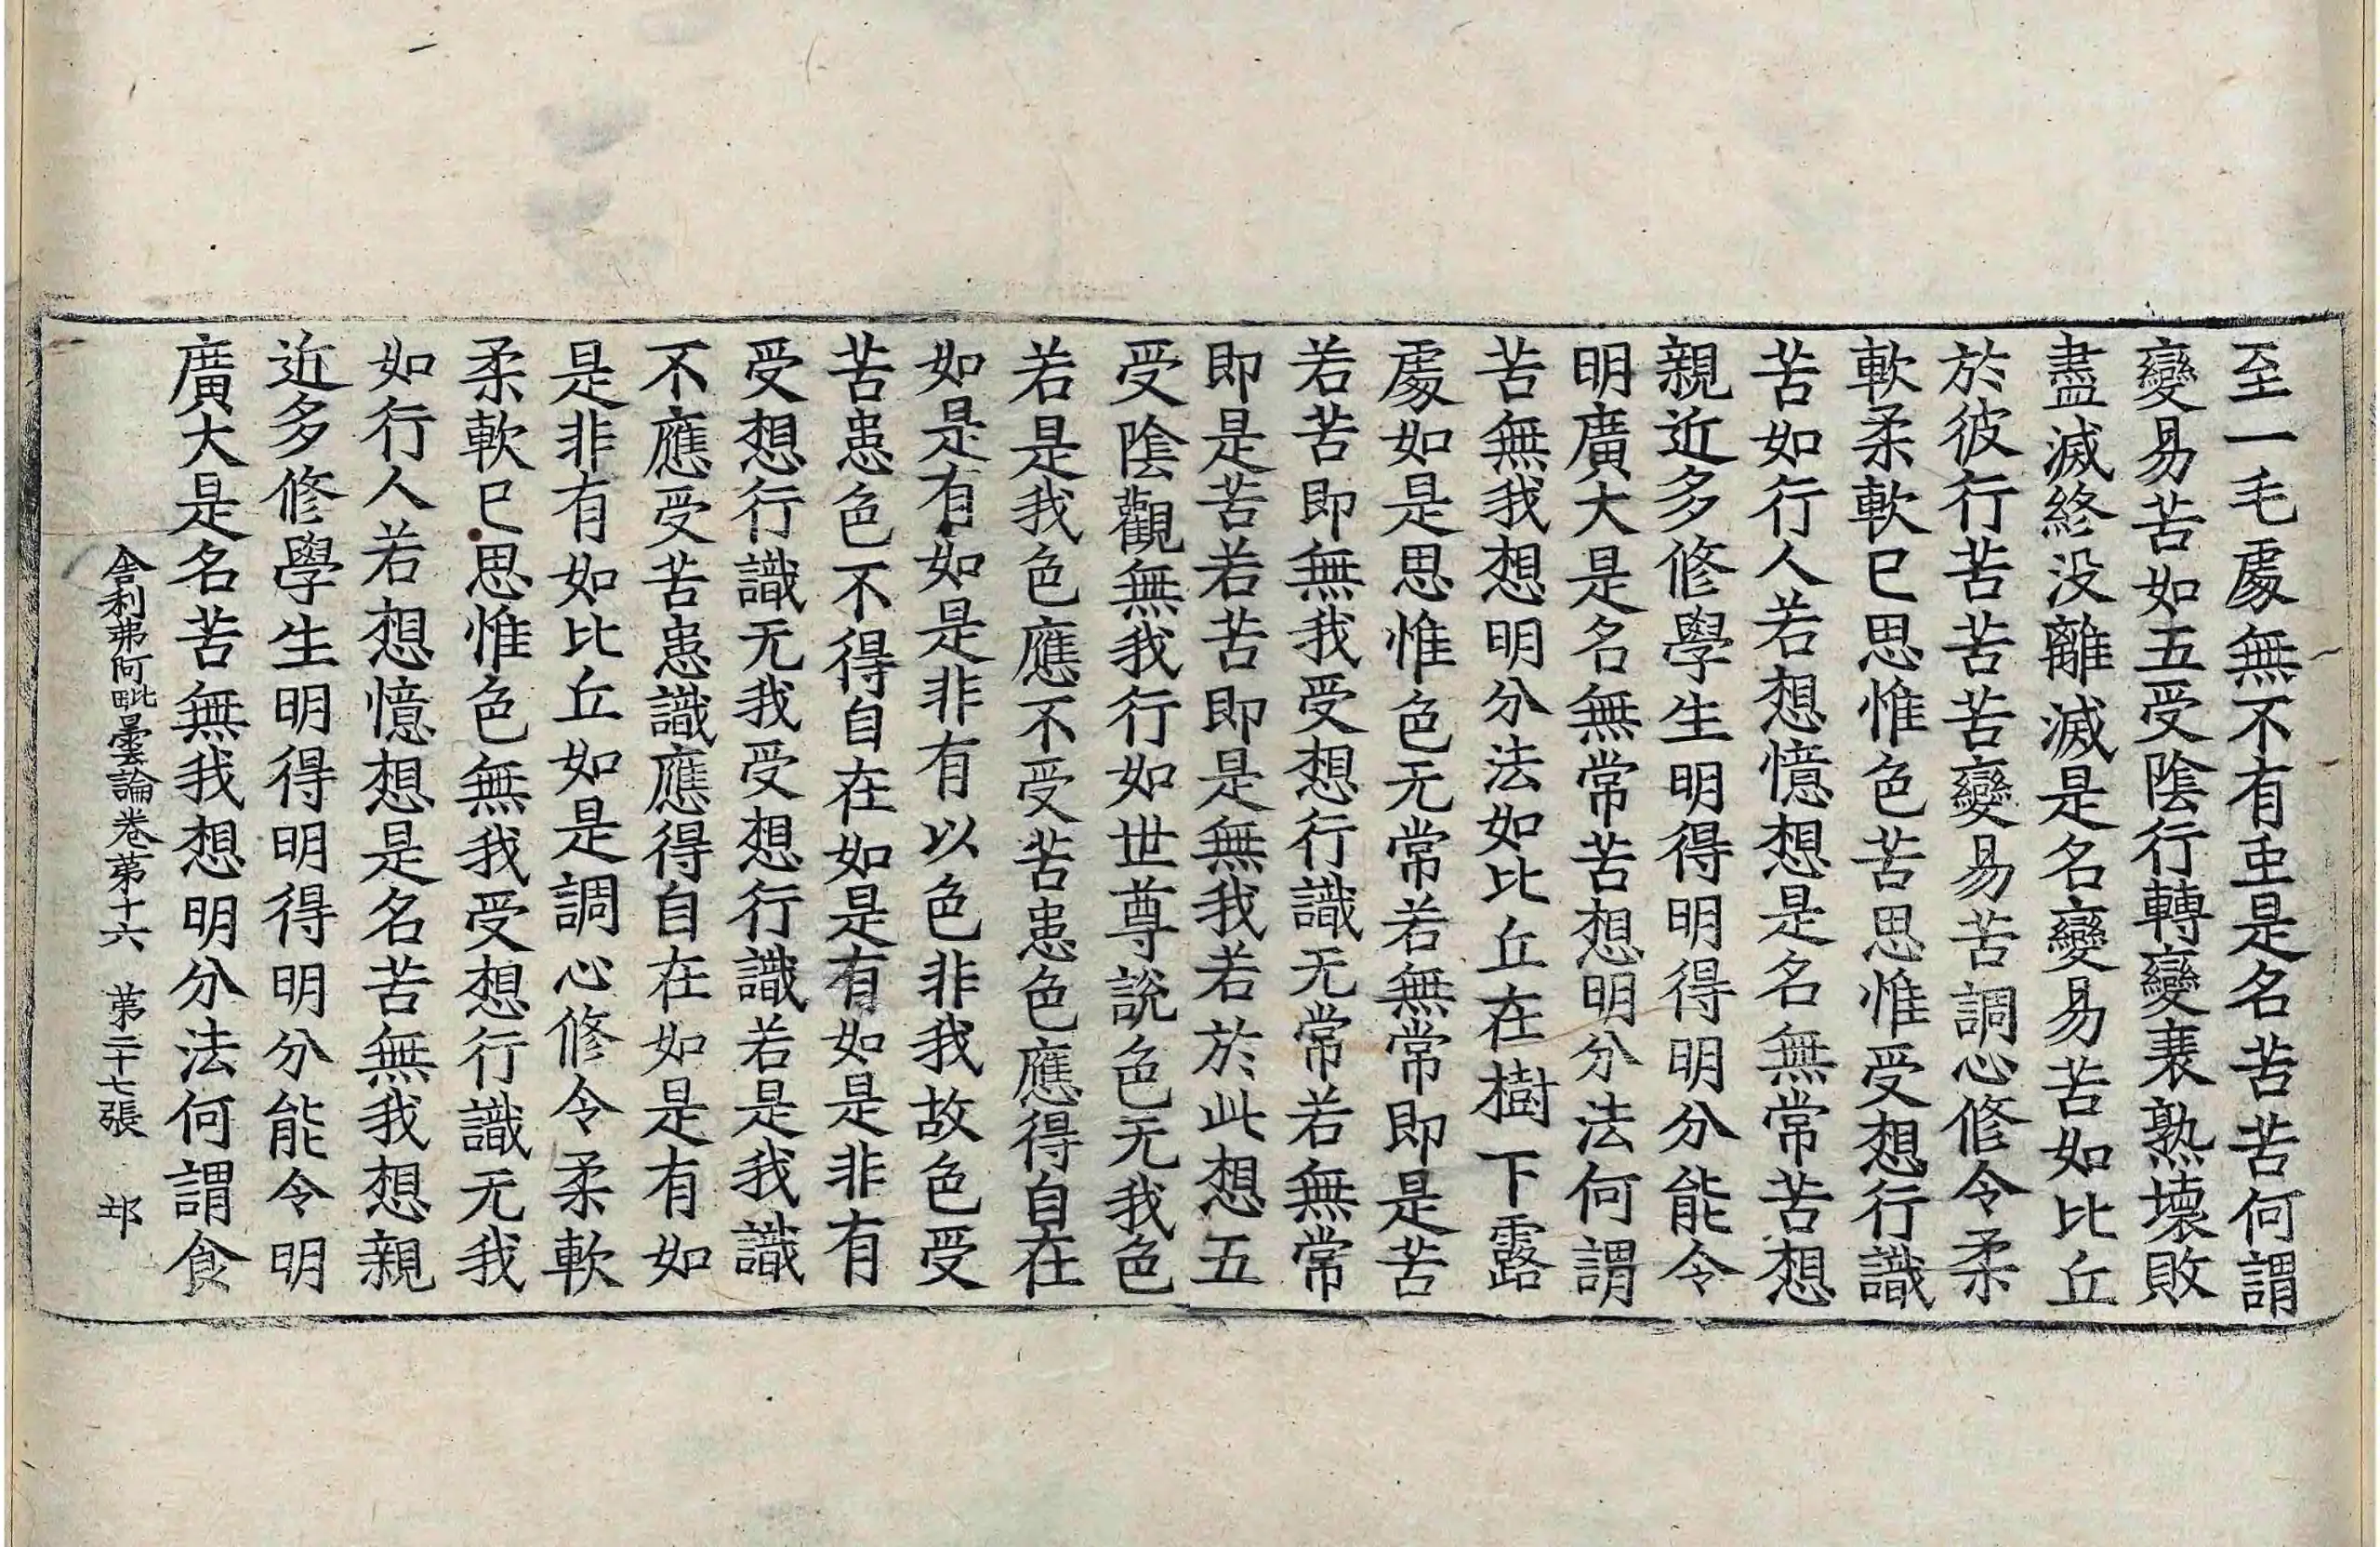 至一毛處無不有𡈽是名苦苦何謂
變易苦如五受陰行轉變衰熟壞敗
盡滅終没離滅是名變易苦如比丘
於彼行苦苦苦變易苦調心修令柔
軟柔軟已思惟色苦思惟受想行識
苦如行人若想憶想是名無常苦想
親近多修學生明得明得明分能令
明廣大是名無常苦想明分法何謂
苦無我想明分法如比丘在樹下露
處如是思惟色无常若無常即是苦
若苦即無我受想行識无常若無常
即是苦若苦即是無我若於此想五
受陰觀無我行如世尊說色无我色
若是我色應不受苦患色應得自在
如是有如是非有以色非我故色受
苦患色不得自在如是有如是非有
受想行識无我受想行識若是我識
不應受苦患識應得自在如是有如
是非有如比丘如是調心修令柔軟
柔軟已思惟色無我受想行識无我
如行人若想憶想是名苦無我想親
近多修學生明得明得明分能令明
廣大是名苦無我想明分法何謂食
舍利弗阿毗曇論卷第十六 第二十七張 邙